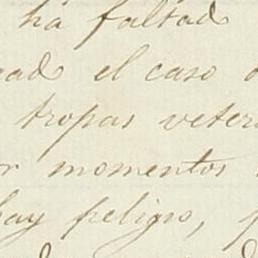 ha faltad
ead el caso
tropas veter
r momentos
hay peligro, p